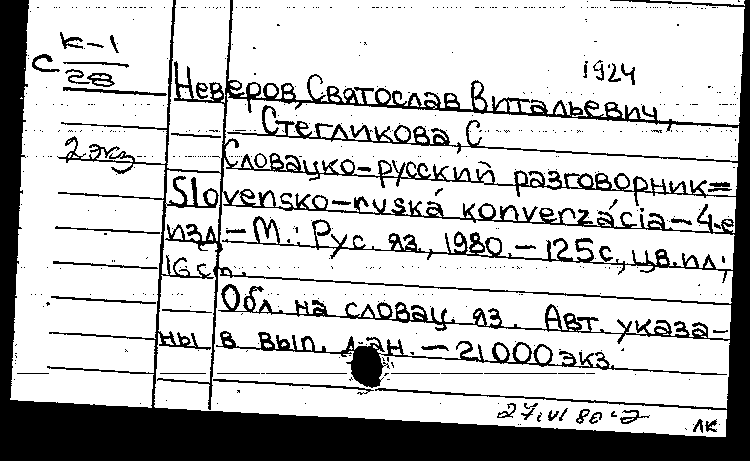 К-1
С 28
1924
Неверов, Святослав Витальевич,
Стегликова, С
2 экз
Словацко-русский разговорник=
Slovensko-ruská konverzácia.-4-е
изд.-М.: Рус. яз., 1980.-125с., цв.ил;
16 см.
Обл. на словац. яз. Авт. указа-
ны в вып. дан.-21000 экз.
27.VI 80
ЛК